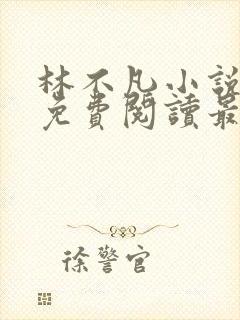 林不凡小說
免費閱讀最
徐警官